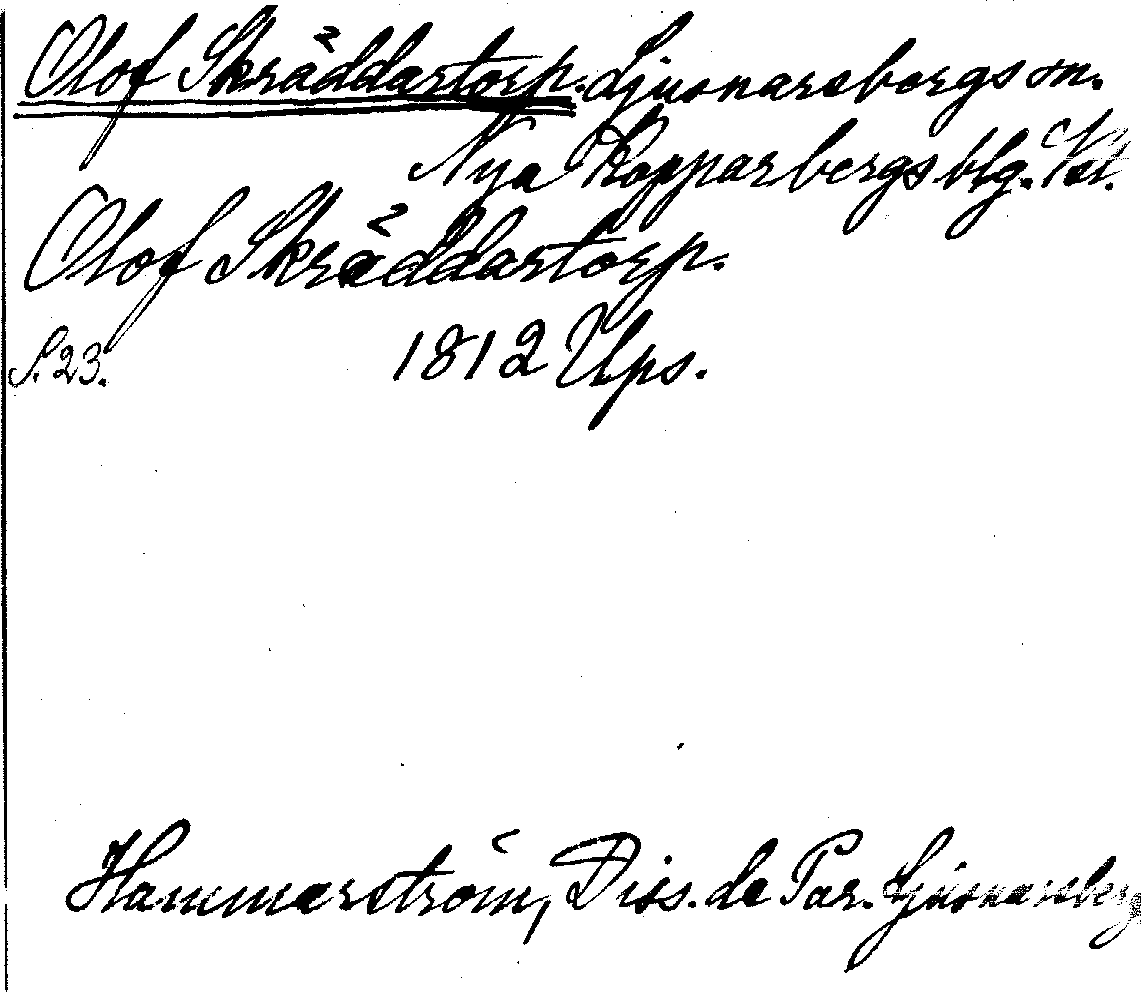 Olof Skräddartorp. Ljusnarsbergs sn.
Nya Kopparbergs blg. Vst.
Olof Skräddartorp.
S. 23. 1812 Ups.
Hammarström, Diss. de Par. Ljusnarsberg